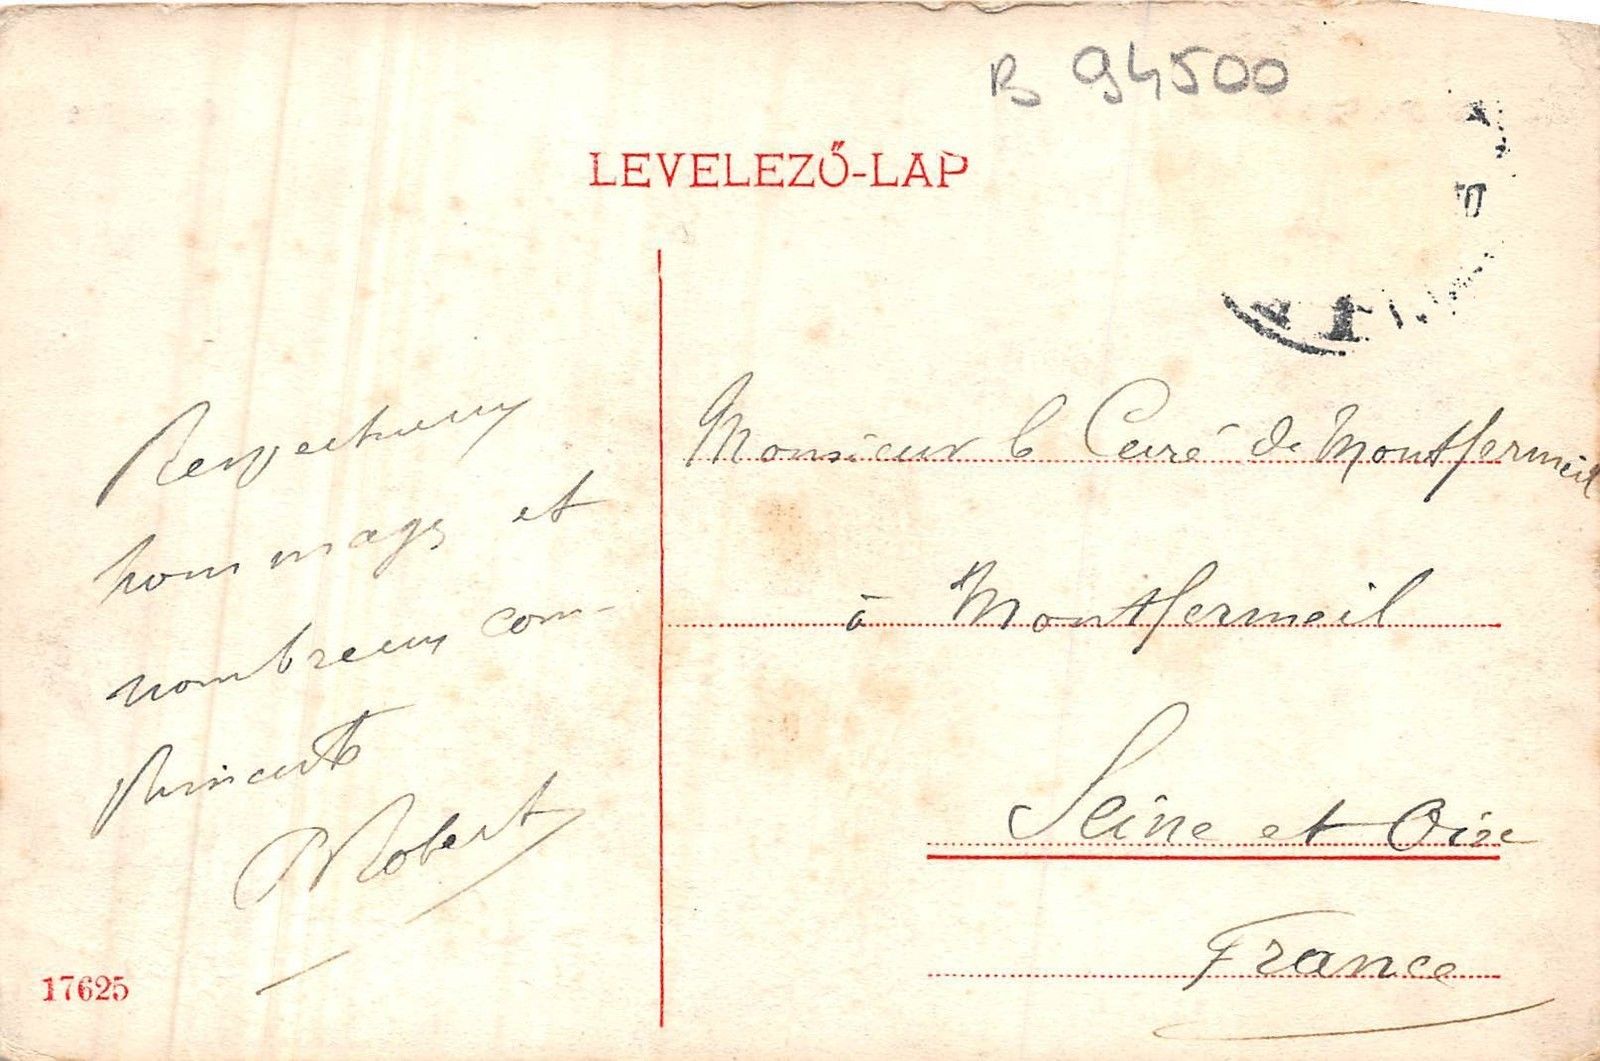 B 94500
LEVELEZŐ-LAP
Respectueux
hommages et
nombreux com-
pliments
Robert
17625
Monsieur le Curé de Montfermeil
à Montfermeil
Seine et Oise
France